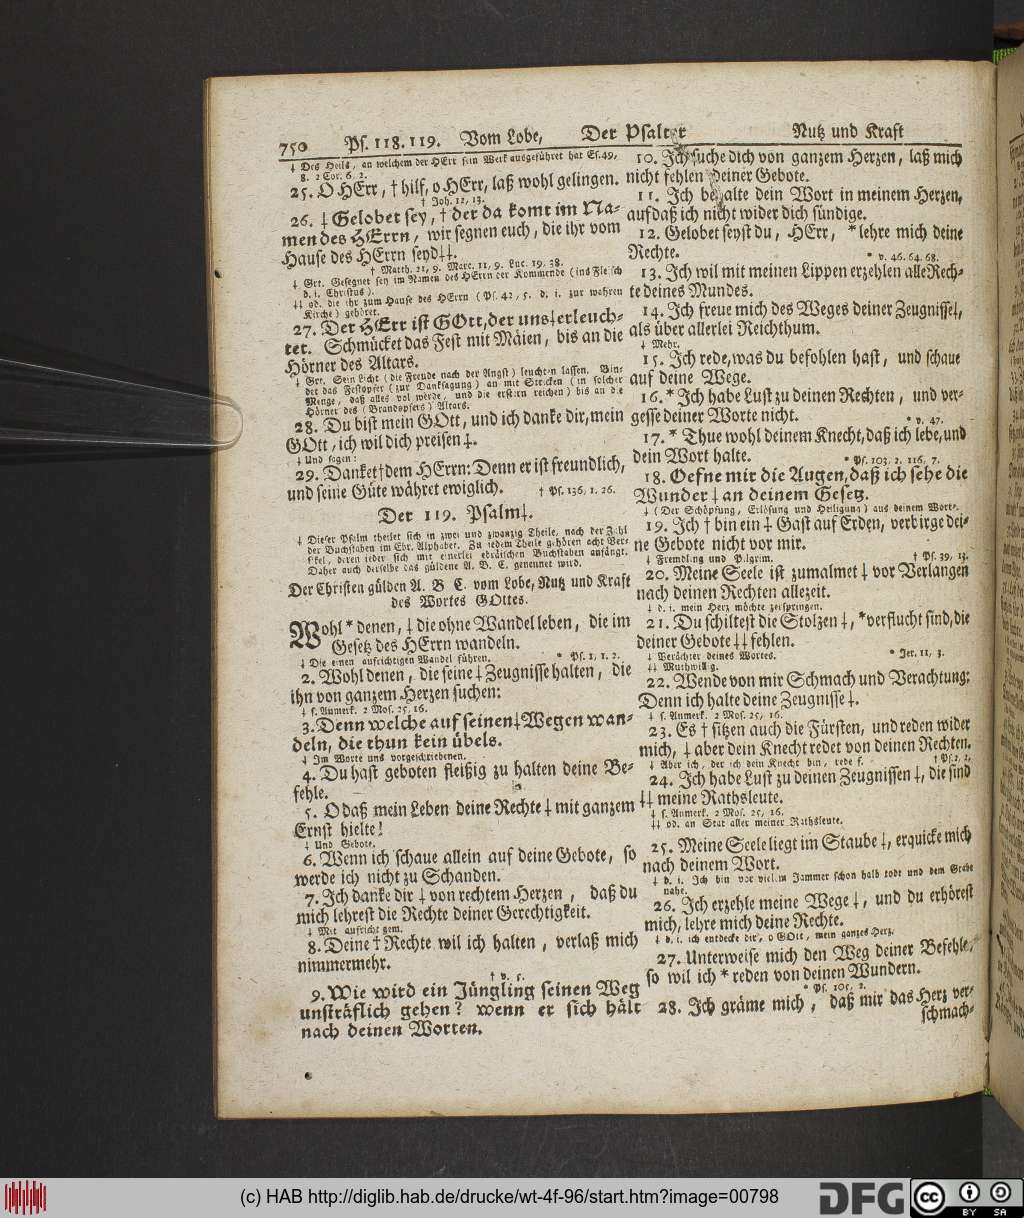 750 Ps. 118. 119. Vom Lobe, Der Psalter Nutz und Kraft
‡ Des Heils, an welchem der HErr sein Werk ausgeführet hat Es. 49,
8. 2 Cor. 6, 2.
25. O HErr, † hilf, o HErr, laß wohl gelingen.
† Joh. 12, 13.
26. ‡ Gelobet sey, † der da komt im Na-
men des HErrn, wir segnen euch, die ihr vom
Hause des HErrn seyd‡‡.
† Matth. 21, 9. Marc. 11, 9. Luc. 19, 38.
‡ Grt. Gesegnet sey im Namen des HErrn der Kommende (ins Fleisch
d. i. Christus).
‡‡ od. die ihr zum Hause des HErrn (Ps. 42, 5. d. i. zur wahren
Kirche) gehöret.
27. Der HErr ist GOtt, der uns‡erleuch-
tet. Schmücket das Fest mit Mäien, bis an die
Hörner des Altars.
‡ Grt. Sein Licht (die Freude nach der Angst) leuchten lassen. Bin-
det das Festopfer (zur Danksagung) an mit Stricken (in solcher
Menge, daß alles vol werde, und die erstern reichen) bis an die
Hörner des (Brandopfers) Altars.
28. Du bist mein GOtt, und ich danke dir, mein
GOtt, ich wil dich preisen‡.
‡ Und sagen:
29. Danket†dem HErrn: Denn er ist freundlich,
und seine Güte währet ewiglich. † Ps. 136, 1. 26.
Der 119. Psalm‡.
‡ Dieser Psalm theilet sich in zwei und zwanzig Theile, nach der Zahl
der Buchstaben im Ebr. Alphabet. Zu jedem Theile gehören acht Vers
sikel, deren jeder sich mit einerlei ebräischen Buchstaben anfängt.
Daher auch derselbe das güldene A. B. C. genennet wird.
Der Christen gülden A. B C. vom Lobe, Nutz und Kraft
des Wortes GOttes.
Wohl * denen, ‡ die ohne Wandel leben, die im
Gesetz des HErrn wandeln.
‡ Die einen aufrichtigen Wandel führen. * Ps. 1, 1. 2.
2. Wohl denen, die seine ‡ Zeugnisse halten, die
ihn von ganzem Herzen suchen:
‡ s. Anmerk. 2 Mos. 25, 16.
3. Denn welche auf seinen‡Wegen wan-
deln, die thun kein übels.
‡ Im Worte uns vorgeschriebenen.
4. Du hast geboten fleißig zu halten deine Be-
fehle.
5. O daß mein Leben deine Rechte ‡ mit ganzem
Ernst hielte!
‡ Und Gebote.
6. Wenn ich schaue allein auf deine Gebote, so
werde ich nicht zu Schanden.
7. Ich danke dir ‡ von rechtem Herzen, daß du
mich lehrest die Rechte deiner Gerechtigkeit.
‡ Mit aufricht gem.
8. Deine † Rechte wil ich halten, verlaß mich
nimmermehr.
† v. 5.
9. Wie wird ein Jüngling seinen Weg
unsträflich gehen? wenn er sich hält
nach deinen Worten.
10. Ich suche dich von ganzem Herzen, laß mich
nicht fehlen deiner Gebote.
11. Ich behalte dein Wort in meinem Herzen,
auf daß ich nicht wider dich sündige.
12. Gelobet seyst du, HErr, * lehre mich deine
Rechte.
* v. 46. 64. 68.
13. Ich wil mit meinen Lippen erzehlen alle Rech-
te deines Mundes.
14. Ich freue mich des Weges deiner Zeugnisse‡,
als über allerlei Reichthum.
‡ Mehr.
15. Ich rede, was du befohlen hast, und schaue
auf deine Wege.
16. * Ich habe Lust zu deinen Rechten, und ver-
gesse deiner Worte nicht.
* v. 47.
17. * Thue wohl deinem Knecht, daß ich lebe, und
dein Wort halte.
* Ps. 103, 2. 116, 7.
18. Oefne mir die Augen, daß ich sehe die
Wunder ‡ an deinem Gesetz.
‡ (Der Schöpfung, Erlösung und Heiligung) aus deinem Worte.
19. Ich † bin ein ‡ Gast auf Erden, verbirge dei-
ne Gebote nicht vor mir.
‡ Fremdling und Pilgrim. † Ps. 39, 13.
20. Meine Seele ist zumalmet ‡ vor Verlangen
nach deinen Rechten allezeit.
‡ d. i. mein Herz möchte zerspringen.
21. Du schiltest die Stolzen ‡, *verflucht sind, die
deiner Gebote ‡‡ fehlen.
‡ Verächter deines Wortes. * Jer. 11, 3.
‡‡ Muthwillig.
22. Wende von mir Schmach und Verachtung:
Denn ich halte deine Zeugnisse ‡.
‡ s. Anmerk. 2 Mos. 25, 16.
23. Es † sitzen auch die Fürsten, und reden wider
mich, ‡ aber dein Knecht redet von deinen Rechten.
‡ Aber ich, der ich dein Knecht bin, rede s. † Ps. 2, 2.
24. Ich habe Lust zu deinen Zeugnissen ‡, die sind
‡‡ meine Rathsleute.
‡ s. Anmerk. 2 Mos. 25, 16.
‡‡ od. an Stat aller meiner Rathsleute.
25. Meine Seele liegt im Staube ‡, erquicke mich
nach deinem Wort.
‡ d. i. Ich bin vor vielem Jammer schon halb todt und dem Grabe
nahe.
26. Ich erzehle meine Wege ‡, und du erhörest
mich, lehre mich deine Rechte.
‡ d. i. ich entdecke dir, o GOtt, mein ganzes Herz.
27. Unterweise mich den Weg deiner Befehle,
so wil ich * reden von deinen Wundern.
* Ps. 105, 2.
28. Ich gräme mich, daß mir das Herz ver-
schmach-
(c) HAB http://diglib.hab.de/drucke/wt-4f-96/start.htm?image=00798
DFG
cc BY SA